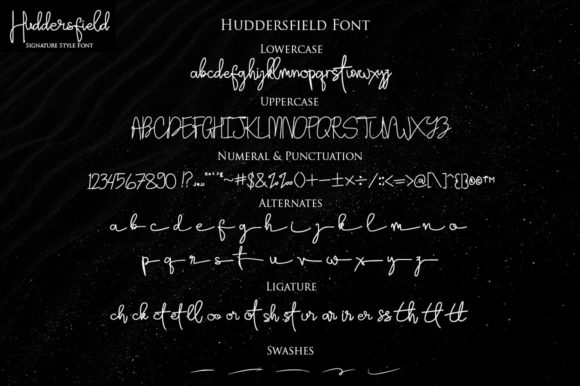 Huddersfield
Signature Style Font
Huddersfield Font
Lowercase
abcdefghijklmnopqrstuvwxyz
Uppercase
ABCDEFGHIJKLMNOPQRSTUVWXYZ
Numeral & Punctuation
1234567890 !?
Alternates
a b c d e f g h i j k l m n o
p q r s t u v w x y z
Ligature
ch ck ct et ll oo or ot sh st ur ar ir er ss th tl tt
Swashes